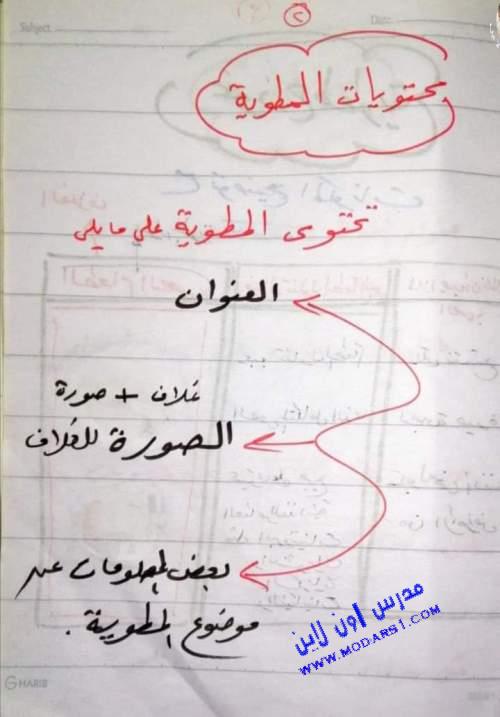 ٢
Subject
Date
محتويات المطوية
تحتوى المطوية على مايلى
العنوان
غلاف + صورة
الصورة للغلاف
بعض المعلومات عن
موضوع المطوية.
مدرس اون لاين
WWW.MODARS1.COM
GHARIB